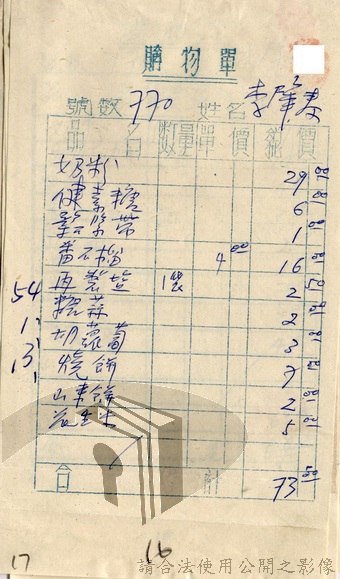 購物單
號數 770 姓名 李肇
品名 數量 單價 總價
奶粉 29
健素糖 6
鬆緊帶 1
番石榴 4 00 16
54 再製鹽 1袋 2
1 糖蒜 2
胡蘿蔔 3
13 燒餅 7
山東餅 2
花生米 5
合計 73
17 16
請合法使用公開之影像